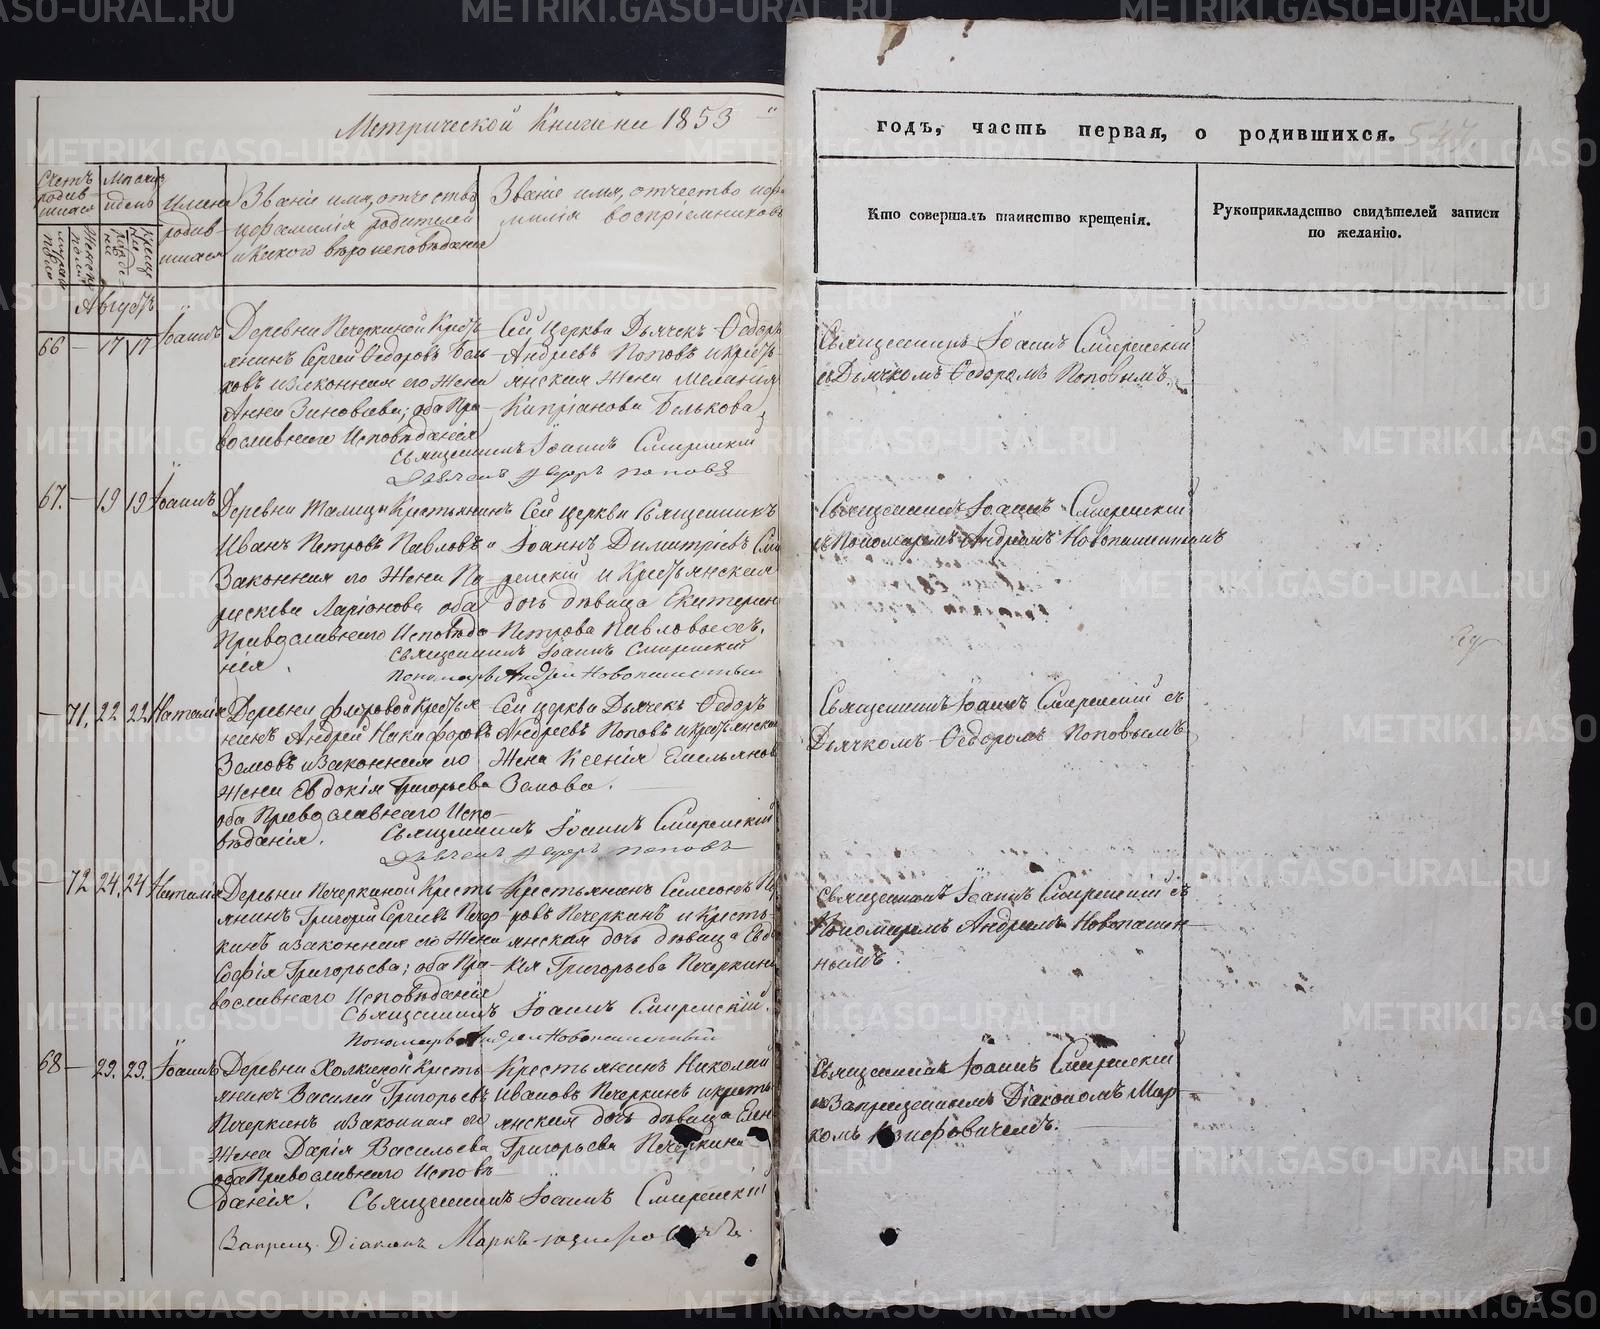 Метрической Книги на 1853
годъ, часть первая, о родившихся.
Счетъ родившихся
Мѣсяцъ и день
Имена родившихся
Званіе имя, отчество и фамилія родителей и какого вѣроисповѣданія
Званіе имя, отчество и фамилія воспріемниковъ
Кто совершалъ таинство крещенія.
Рукоприкладство свидѣтелей записи
по желанію.
Мужеска пола
Женска пола
Рожденія
Крещенія
Августъ
66 — 17 17 Іоаннъ
Деревни Печеркиной Кресть-
янинъ Сергей Федоровъ Бель-
ковъ и Законная его Жена
Анна Зиновьева; оба Пра-
вославнаго Исповѣданія
Сей Церкви Дьячекъ Федоръ
Андреевъ Поповъ и Кресть-
янская Жена Меланія
Кипріанова Белькова,
Священникъ Іоаннъ Смиренскій
Дьячекъ Федоръ Поповъ
Священникъ Іоаннъ Смиренскій
съ Дьячкомъ Федоромъ Поповымъ.
67. — 19 19 Іоаннъ
Деревни Талицы Крестьянинъ
Иванъ Петровъ Павловъ и
Законная его Жена Па-
раскева Ларіонова оба
Православнаго Исповѣда-
нія.
Сей церкви Священникъ
Іоаннъ Димитріевъ Сми-
ренскій и Крестьянская
дочь дѣвица Екатерина
Петрова Павловыхъ.
Священникъ Іоаннъ Смиренскій
Пономарь Андрей Новопашенный
Священникъ Іоаннъ Смиренскій
съ Пономаремъ Андреемъ Новопашеннымъ
— 71. 22 22 Наталія
Деревни Фларовой Кресть-
нинъ Андрей Никифоровъ
Земовъ и Законная его
Жена Евдокія Григорьева
оба Православнаго Испо-
вѣданія.
Сей церкви Дьячекъ Федоръ
Андреевъ Поповъ и крестьянская
Жена Ксенія Емельянова
Земова.
Священникъ Іоаннъ Смиренскій
Дьячекъ Федоръ Поповъ
Священникъ Іоаннъ Смиренскій съ
Дьячкомъ Федоромъ Поповымъ
— 72 24. 24 Наталія
Деревни Печеркиной Кресть-
янинъ Григорій Сергіевъ Печер-
кинъ и Законная его Жена
Софія Григорьева; оба Пра-
вославнаго Исповѣданія
Крестьянинъ Симеонъ
ровъ Печеркинъ и Кресть-
янская дочь дѣвица Евдо-
кія Григорьева Печеркина
Священникъ Іоаннъ Смиренскій.
Пономарь Андрей Новопашенный
Священникъ Іоаннъ Смиренскій съ
Пономаремъ Андреемъ Новопашен-
нымъ.
68 — 29. 29. Іоаннъ
Деревни Холкиной Кресть-
янинъ Василій Григорьевъ
Печеркинъ и Законная его
Жена Дарія Васильева
оба Православнаго Исповѣ-
данія.
Крестьянинъ Николай
Ивановъ Печеркинъ и кресть-
янская дочь дѣвица Елен
Григорьева Печеркина
Священникъ Іоаннъ Смиренскій
Запрещ. Діаконъ Маркъ Іозифовичь
Священникъ Іоаннъ Смиренскій
съ Запрещеннымъ Діакономъ Мар-
комъ Іозифовичемъ.
METRIKI.GASO-URAL.RU